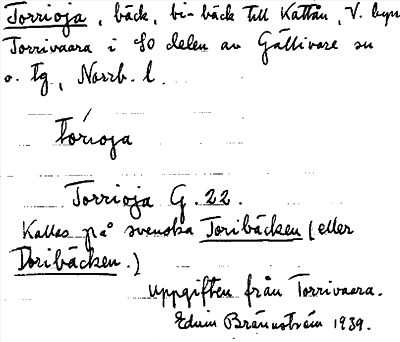 Torrioja, bäck, bi-bäck till Kattån, V. byn
Torrivaara i SO delen av Gällivare sn
o. tg, Norrb. l.
tórioja
Torrioja G. 22.
Kallas på svenska Toribäcken (eller
Doribäcken.)
Uppgiften från Torrivaara.
Edvin Brännström 1939.